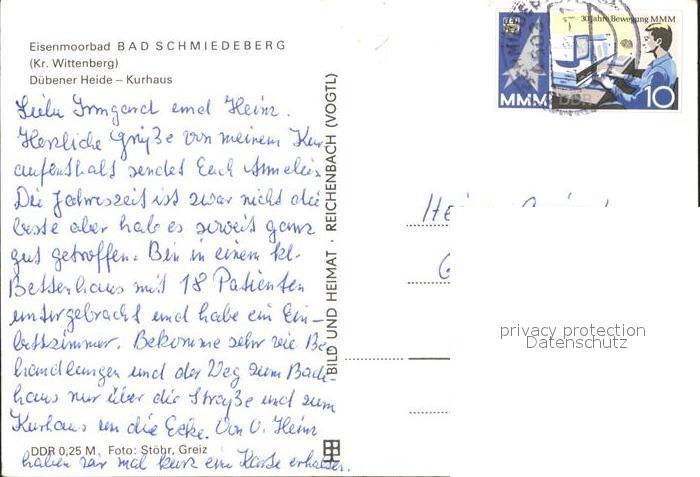 Eisenmoorbad BAD SCHMIEDEBERG
(Kr. Wittenberg)
Dübener Heide – Kurhaus
30 Jahre Bewegung MMM
MMM DDR 10
Liebe Irmgard und Heinz.
Herzliche Grüße von meinem Kur
aufenthalt sendet Euch Annelies
Die Jahreszeit ist zwar nicht die
beste aber hab es soweit ganz
gut getroffen. Bin in einem kl.
Bettenhaus mit 18 Patienten
untergebracht und habe ein Ein-
bettzimmer. Bekomme sehr vie Be
handlungen und der Weg zum Bade-
haus nur über die Straße und zum
Kurhaus um die Ecke. Von U. Heinz
haben wir mal kurz eine Karte erhalten.
DDR 0,25 M Foto: Stöhr, Greiz
BILD UND HEIMAT · REICHENBACH (VOGTL)
privacy protection
Datenschutz